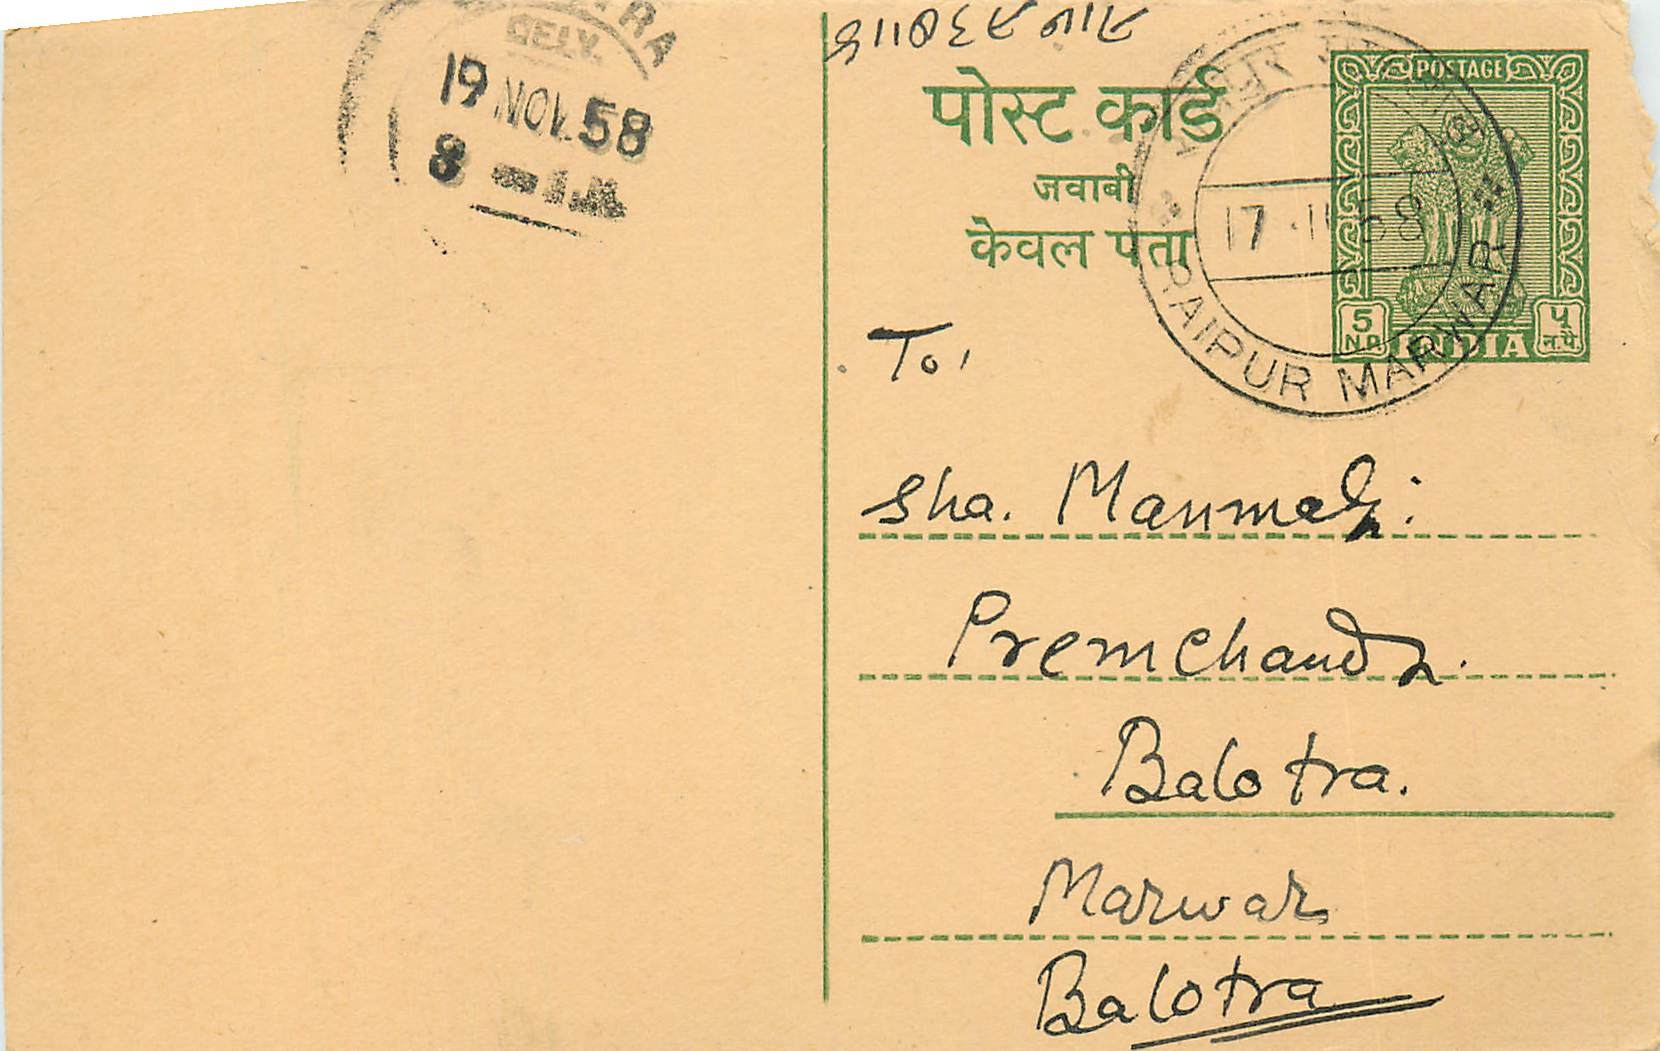 TRA
DELY.
19 NOV. 58
8
पोस्ट कार्ड
जवाबी
केवल पता
POSTAGE
5 N.P.
INDIA
५ न.पै.
17 . 11 58
RAIPUR MARWAR
To,
Sha.
Premchand
Balotra.
Marwar
Balotra